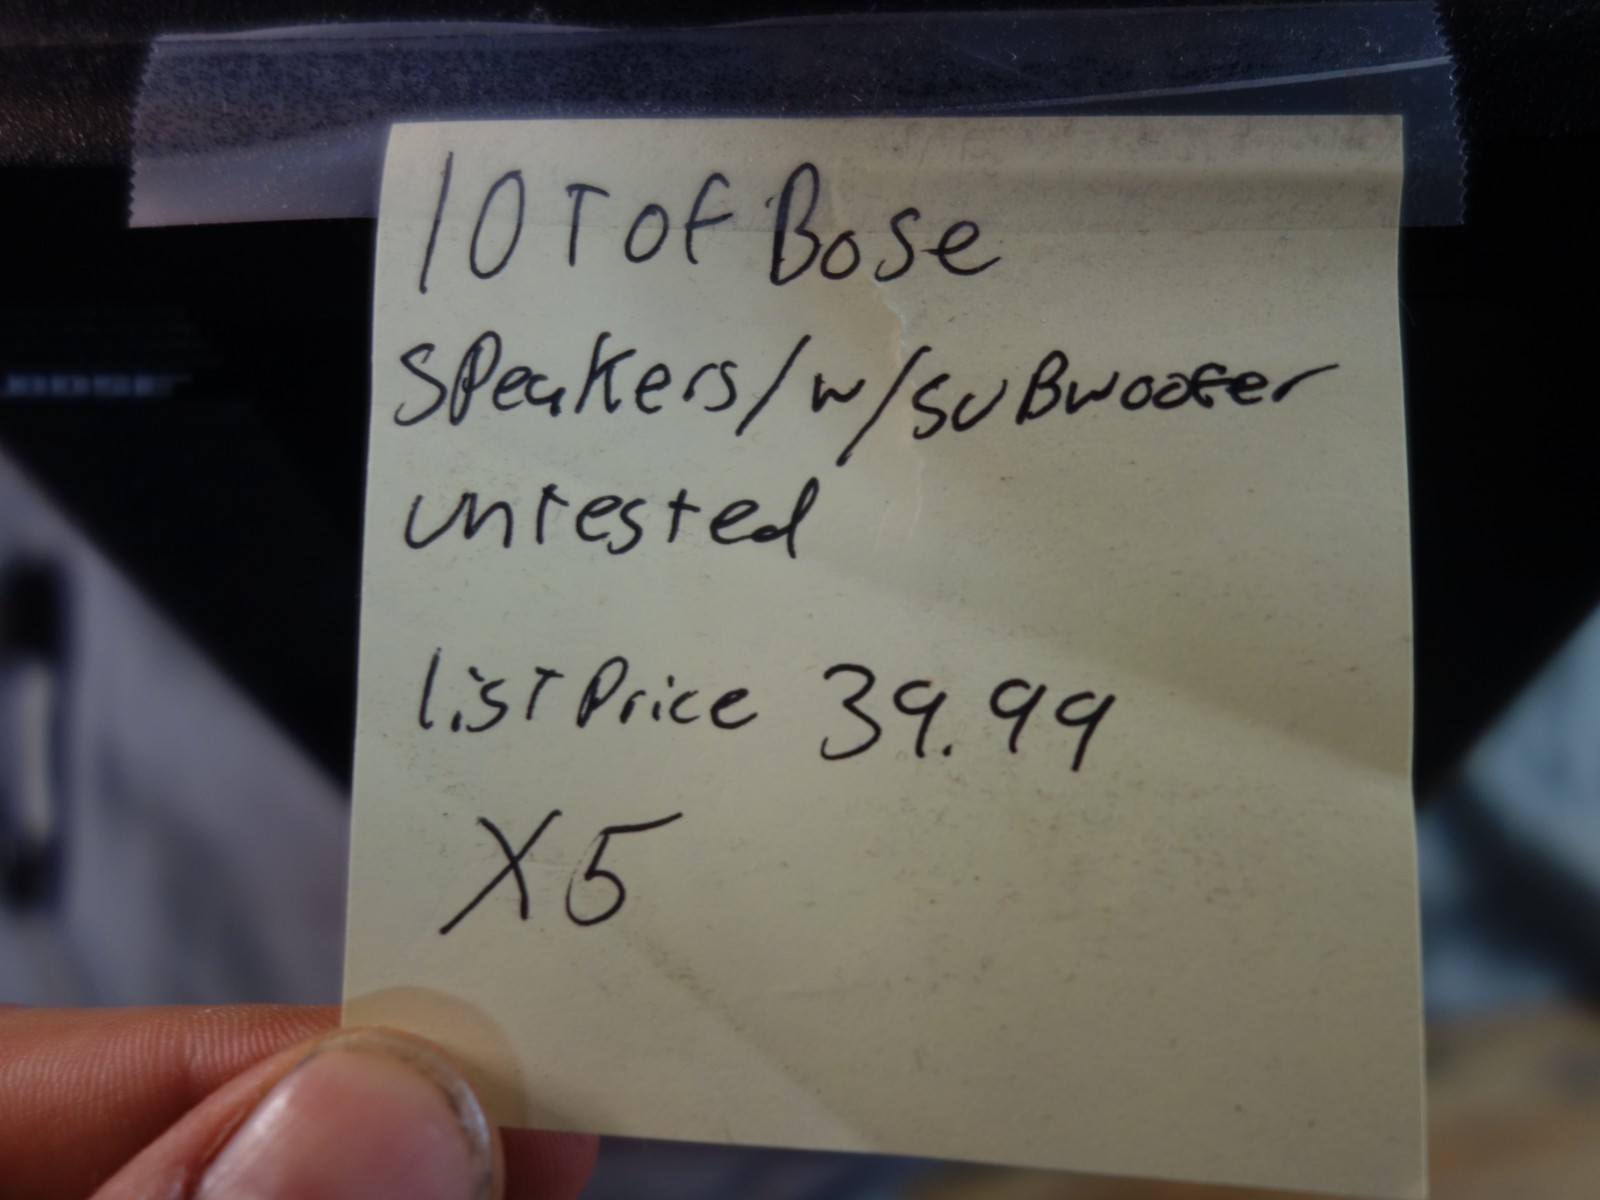 10T of Bose
Speakers/w/suBwoofer
untested
list Price 39.99
X5